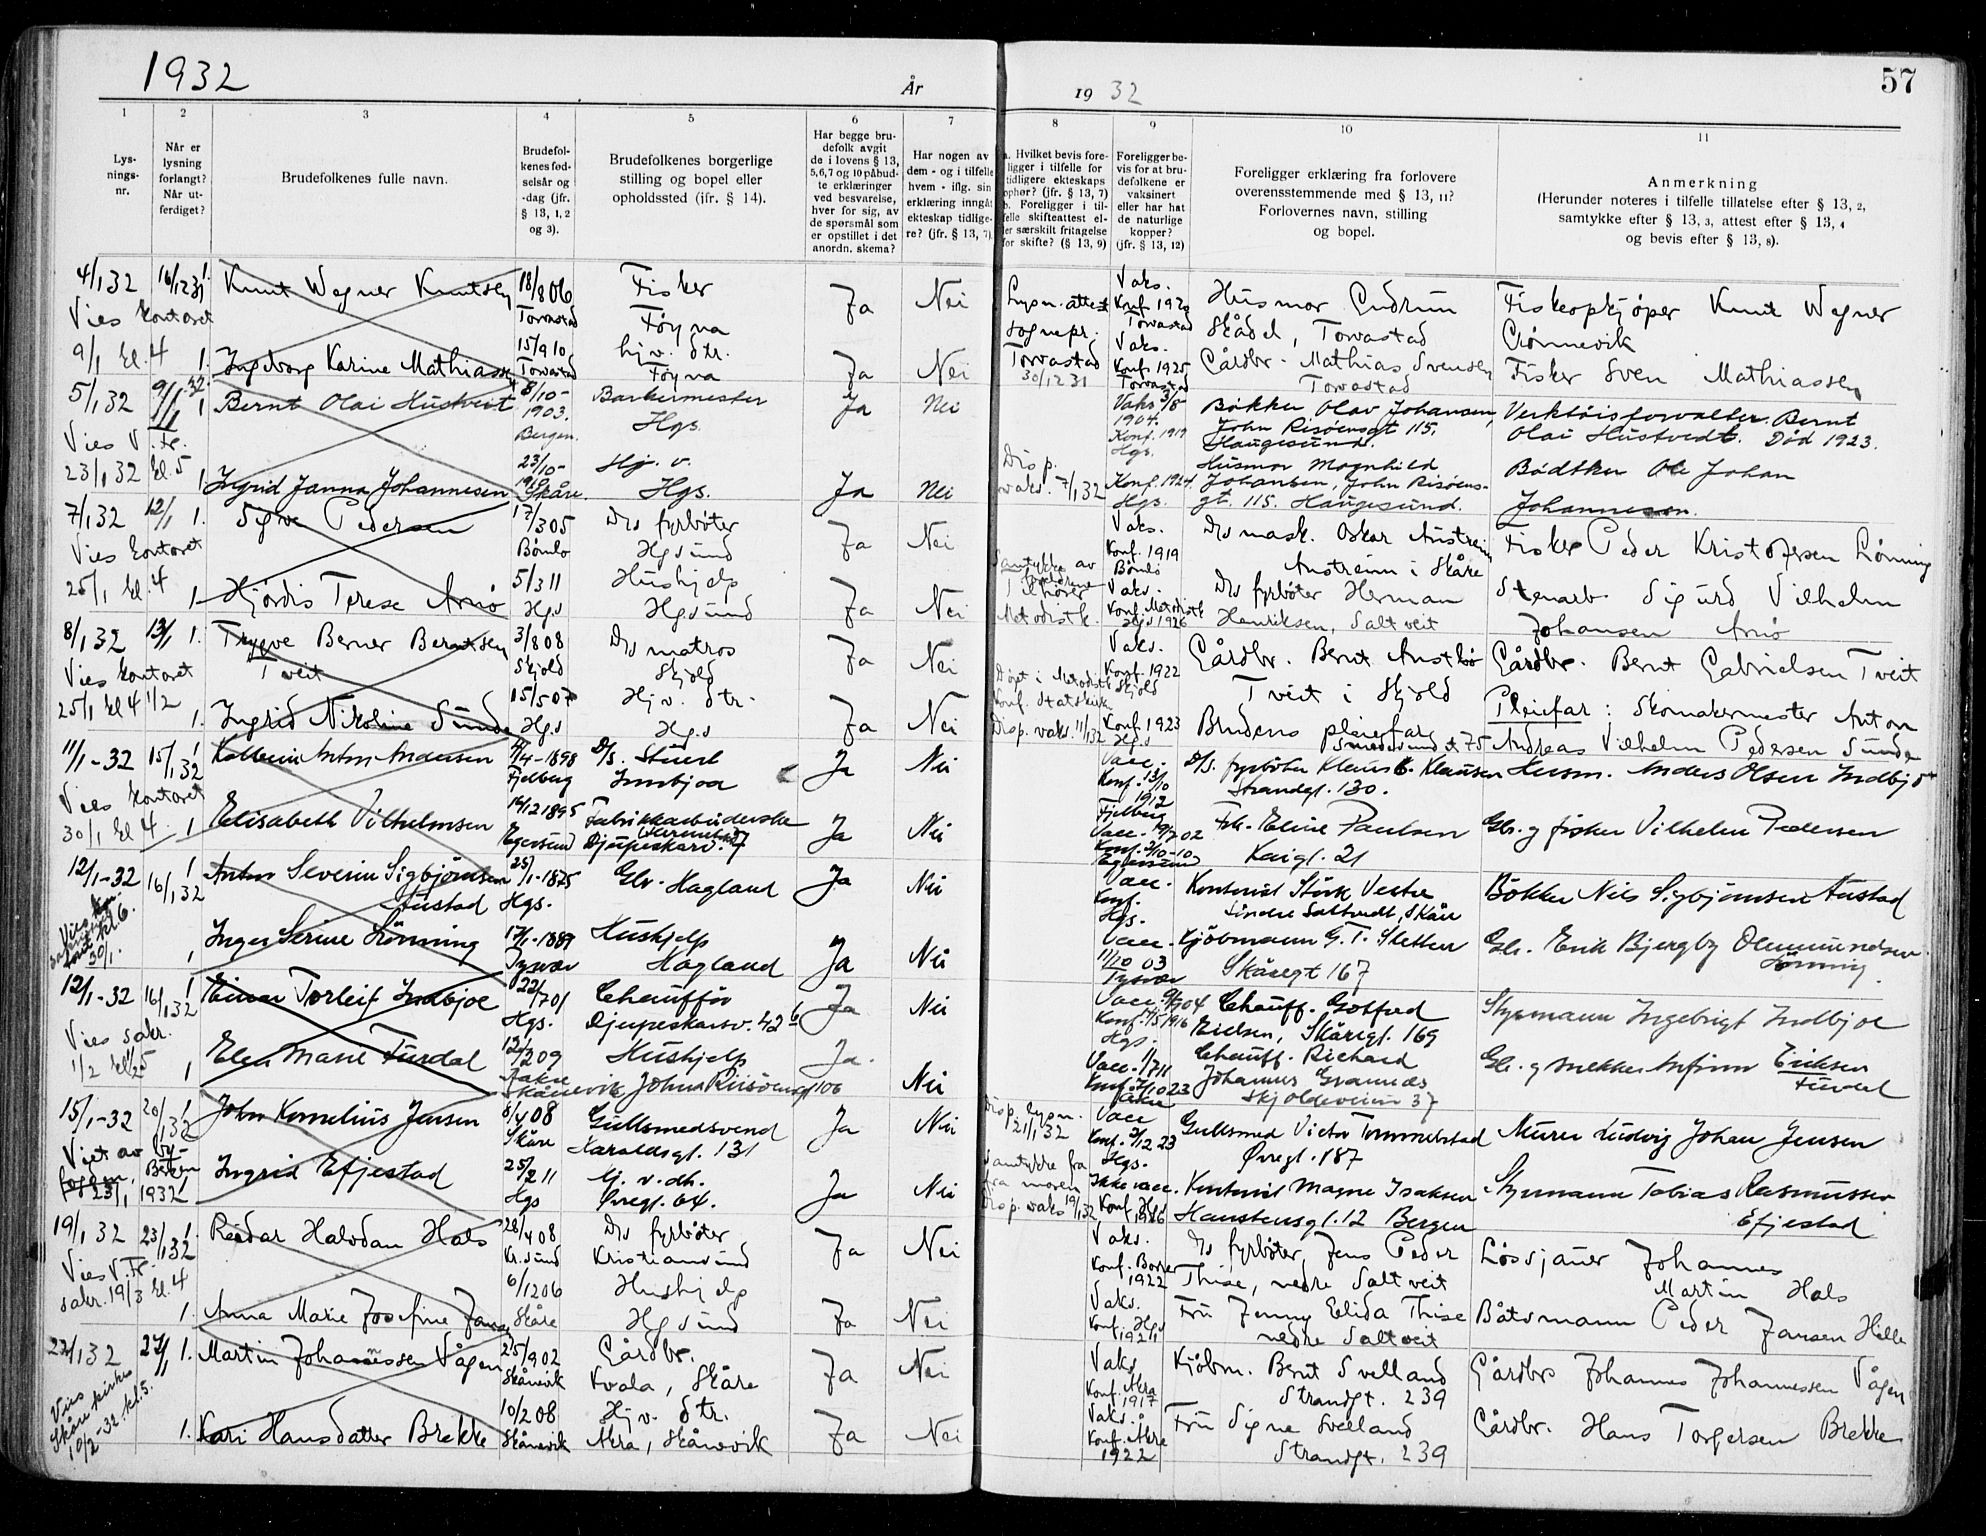 1932
År
19 32
57
1
2
3
4
5
6
7
8
9
10
11
Lys-
nings-
nr.
Når er
lysning
forlangt?
Når ut-
ferdiget?
Brudefolkenes fulle navn.
Brudefol-
kenes fød-
selsår og
-dag (jfr.
§ 13, 1, 2
og 3).
Brudefolkenes borgerlige
stilling og bopel eller
opholdssted (jfr. § 14).
Har begge bru-
defolk avgit
de i lovens § 13,
5, 6, 7 og 10 påbud-
te erklæringer
ved besvarelse,
hver for sig, av
de spørsmål som
er opstillet i det
anordn. skema?
Har nogen av
dem - og i tilfelle
hvem - iflg. sin
erklæring inngåt
ekteskap tidlige-
re? (jfr. § 13, 7).
a. Hvilket bevis fore-
ligger i tilfelle for
tidligere ekteskaps
ophør? (jfr. § 13, 7)
b. Foreligger i til-
felle skifteattest el-
er særskilt fritagelse
for skifte? (§ 13, 9)
Foreligger be-
vis for at bru-
defolkene er
vaksinert
eller har hat
de naturlige
kopper?
(jfr. § 13, 12)
Foreligger erklæring fra forlovere
overensstemmende med § 13, 11?
Forlovernes navn, stilling
og bopel.
Anmerkning
(Herunder noteres i tilfelle tillatelse efter § 13, 2,
samtykke efter § 13, 3, attest efter § 13, 4
og bevis efter § 13, 8).
4/1 32 16/12 31 1. Knut Wagner Knutsen 18/8 06 Torvastad Fisker Føyna Ja Nei
Lysn. attest sognepr. Torvastad 30/12 31
Vaks. Konf. 1920 Torvastad Husmor Gudrun Skådel, Torvastad Fiskeopkjøper Knut Wagner Grønnevik
Vies kontoret 9/1 kl. 4
1. Ingeborg Karine Mathiassen 15/9 10 Torvastad hj. v. str. Føyna Ja Nei
Vaks. Konf. 1925 Torvastad Gårdbr. Mathias Svensen Torvastad Fisker Sven Mathiassen
5/1 32 9/1 32 1 Bernt Olai Hustveit 8/10- 1903. Bergen. Barbermester Hgs. Ja Nei
Vaks 3/8 1904. Konf. 1919 Hgs. Bøkker Olav Johansen, John Risøensgt 115. Haugesund. Verktøisforvalter Bernt Olai Hustvedt. Død 1923.
Vies V. Fr. 23/1 32 kl. 5
1 Ingrid Janna Johannesen 23/10- 1910 Skåre. Hj. v. Hgs. Ja Nei
Disp. vaks. 7/1 32 Konf. 1924. Hgs. Husmor Magnhild Johansen, John Risøens- gt. 115. Haugesund. Bødtker Ole Johan Johannesen.
7/1 32 12/1 1. Sigve Pedersen 17/3 05 Bømlo D/s fyrbøter Hgsund Ja Nei
Vaks. Konf. 1919 Bømlo D/s mask. Oskar Austreim Austreim i Skåre Fisker Peder Kristofersen Lønning
Vies kontoret 25/1 kl. 4
1 Hjørdis Terese Arnø 5/3 11 Hgs Hushjelp Hgsund Ja Nei
Samtykke av foreldrene Tilhører Metodistk. Vaks. Konf. Metodistk Hgs 1926 D/s fyrbøter Herman Henriksen, Saltveit Stenarb. Sigurd Vilhelm Johansen Arnø
8/1 32 13/1 1. Trygve Berner Berntsen Tveit 3/8 08 Skjold D/s matros Skjold Ja Nei
Vaks. Konf. 1922 Skjold Gårdbr. Bernt Austbø Tveit i Skjold Gårdbr. Bernt Gabrielsen Tveit
Vies kontoret 25/1 kl 4 1/2
1. Ingrid Nikoline Sunde 15/5 07 Hgs Hj. v. str. Hgs Ja Nei
Døpt i Metodistk Konf. Statskirk Disp. vaks. 11/1 32 Konf. 1923 Hgs Brudens pleiefar Smedesundet 75 Pleiefar: Skomakermester Anton Andreas Vilhelm Pedersen Sunde
11/1-32 15/1 32 1 Andersen /4-1898 Fjelberg D/s. Stuert Innbjoa Ja Nei
Vacc. Konf. 13/10 1912 Fjelberg D/s. fyrbøter Klaus Klausen Strandgt. 130. Husm. Anders Olsen Indbjo
Vies kontoret 30/1 kl 4.
1 Elisabeth Vilhelmsen 14/12 1895 Egersund Fabrikkarbeiderske Djupeskarv. Ja Nei
Vacc. 02 Konf. 2/10-10 Egersund Frk. Eline Paulsen Kaigt. 21 Gbr. og fisker Vilhelm Pedersen
12/1-32 16/1 32 1 Anton Severin Sigbjørnsen Austad 25/1-1875 Hgs. Gbr. Hagland Ja Nei
Vacc. Konf. Hgs. Kontorist Støvk Vestre Lindre Saltvedt, Skåre Bøkker Nils Sigbjørnsen Austad
30/1.
1 Inger Serine Lønning 17/1-1889 Tysvær Hushjelp Hagland Ja Nei
Vacc. 11/10 03 Tysvær Kjøbmann G. T. Sletten Skåregt 167 Gbr. Erik Bjergby Ommundsen Lønning.
12/1-32 16/1 32 1 Einar Torleif Indbjoe 22/7 01 Hgs. Chauffør Djupeskarsv. 42 b Ja Nei
Vacc. 04 Konf. 14/5 1916 Hgs. Chauff. Gotfred Eielsen, Skåregt. 169 Styrmann Ingebrigt Indbjoe
Vies sakr. 1/2 kl 5
1 Elen Marie Furdal 12/2 09 Åkre Skånevik Hushjelp John Riisøensgt 106 Ja. Nei
Vacc. 1/7 11 Konf. 7/10 23 Åkre Chauff. Richard Johannes Grannes Skjoldeveien 37 Gbr. og snekker Anfinn Eriksen Furdal
15/1-32 20/1 32 1 John Kornelius Jensen 8/4 08 Skåre Gullsmedsvend Haraldsgt. 131 Ja Nei
Disp. lysn. 21/1 32 Vacc Konf. 2/12 23 Hgs. Gullsmed Victor Tommelstad Øvregt. 187 Murer Ludvig Johan Jensen
Viet av By- fogden. Bergen 23/1 1932
1 Ingrid Efjestad 25/2 11 Hgs Hj. v. dh. Øvregt. 64. Ja Nei
Samtykke fra fra moren Disp. vaks 19/1 32 Ikke vacc. Konf. Hgs 1926 Kontorist Magne Isaksen Hansteensgt. 12 Bergen Styrmann Tobias Rasmussen Efjestad
19/1 32 23/1 32 1. Reidar Halvdan Hals 28/4 08 Kr.sund D/s fyrbøter Kristiansund Ja Nei
Vaks. Konf. Borre 1922 D/s fyrbøter, Jens Peder Thise, nedre Saltveit Løssjauer Johannes Martin Hals
Vies V. Fr. sakr. 19/3 kl. 4
1. Anna Marie Josefine Jansen 6/12 06 Skåre Hushjelp Hgsund Ja Nei
Vaks. Konf. Hgs 1921 Fru Jenny Elida Thise nedre Saltveit Båtsmann Peder Jansen Hille
22/1 32 27/1 1. Martin Johannessen Vågen 25/9 02 Skånevik Gårdbr. Kvala, Skåre Ja Nei
Vaks Konf. Åkra 1917 Kjøbm. Bernt Svelland Strandgt. 239 Gårdbr Johannes Johannessen Vågen
Vies Skåre kirke 10/2-32 kl. 5.
1. Kari Hansdatter Brekke 10/2 08 Skånevik Hj. v. str. Åkra, Skånevik Ja Nei
Vaks. Konf. Åkra 1922 Fru Signe Svelland Strandgt. 239 Gårdbr. Hans Torgersen Brekke